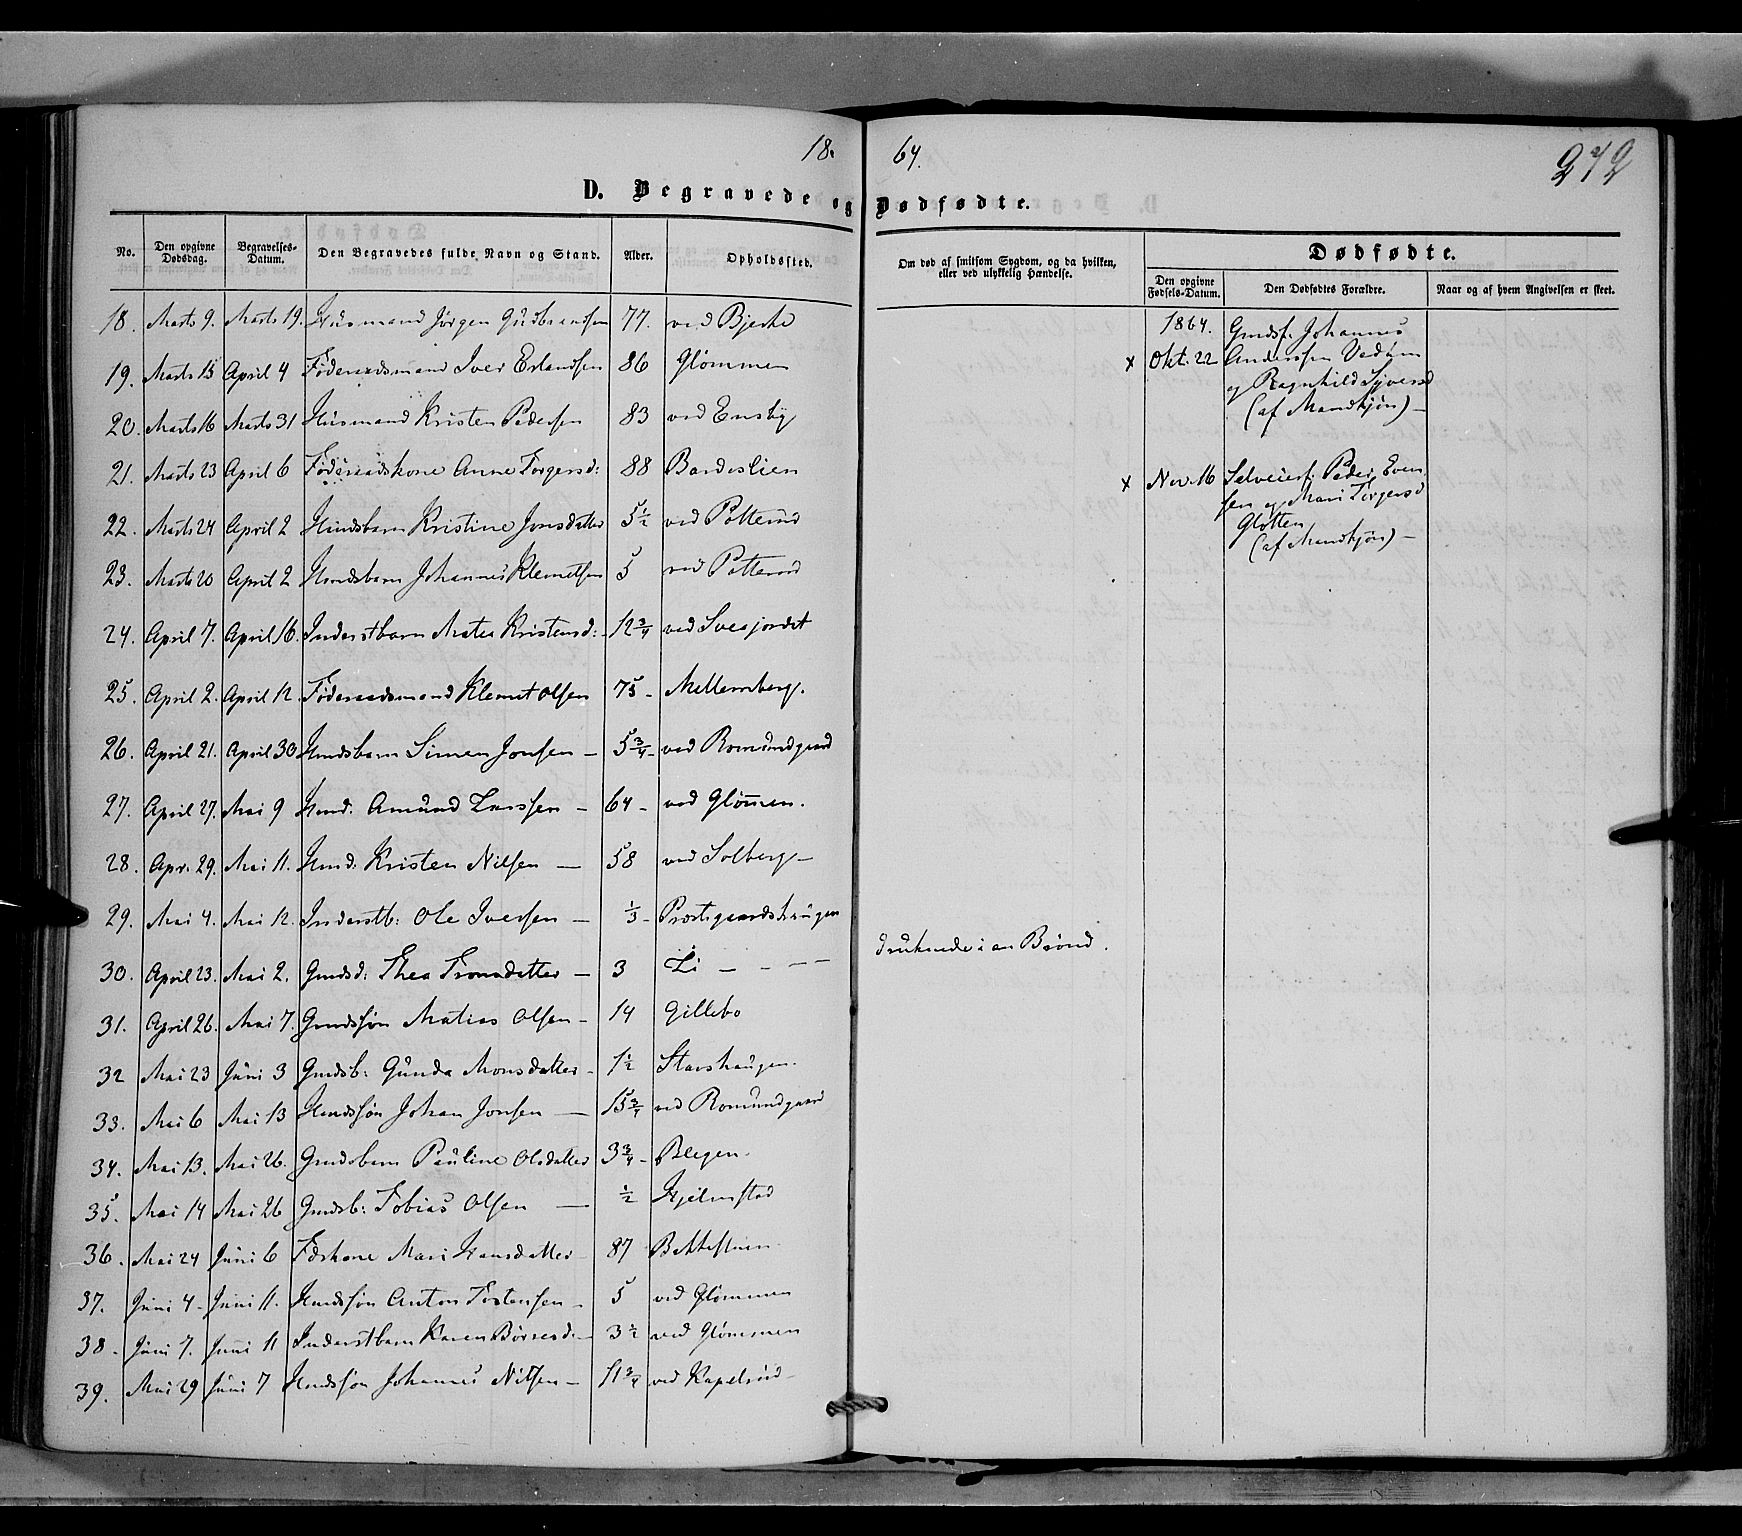 18.
64.
272
D. Begravede og Dødfødte.
No. Den opgivne Dødsdag. Begravelses-Datum. Den Begravedes fulde Navn og Stand. Alder. Opholdssted.
Om død af smitsom Sygdom, og da hvilken, eller ved ulykkelig Hændelse.
Dødfødte.
Den opgivne Fødsels-Datum. Den Dødfødtes Forældre. Naar og af hvem Angivelsen er skeet.
18. Marts 9. Marts 19. Husmand Jörgen Gudbrandsen 77. ved Bjerke
19. Marts 15 April 4 Föderaadsmand Iver Erlandsen 86 Glömmen
20. Marts 16 Marts 31 Husmand Kristen Pedersen 83 ved Ensby
21. Marts 23 April 6 Föderaadskone Anne Torgersd: 88 Bardeslien
22. Marts 24 April 2 Hmdsbarn Kristine Jonsdatter 5 1/2 ved Potterud
23. Marts 20 April 2 Hmdsbarn Johannes Klemetsen 5 ved Potterud
24. April 7. April 16. Inderstbarn Matea Kristensd: 12 3/4 ved Sveajordet
25. April 2. April 12. Föderaadsmand Klemet Olsen 75 - Mellemberg.
26. April 21. April 30 Hmdsbarn Simen Jonsen - 5 3/4 - ved Romundgaard
27. April 27. Mai 9 Hmd: Amund Larssen - 64 - ved Glömen.
28. Apr. 29. Mai 11. Hmd: Kristen Nilsen - 58 ved Solberg -
29. Mai 4. Mai 12. Inderstb: Ole Iversen - 1/3 - Prostgaardshaugen
30. April 23. Mai 2. Gmdsd: Thea Tronsdatter - 3 Li - - - druknede i en Brönd.
31. April 26. Mai 7. Gmdssön Matias Olsen - 14 Gillebo
32 Mai 23 Juni 3 Gmdsb: Gunda Monsdatter - 1 1/2 Stavshaugen.
33. Mai 6 Mai 13 Hmdssön Johan Jonsen - 15 3/4 ved Romundgaard
34. Mai 13. Mai 26. Gmdsbarn Pauline Olsdatter 3 3/4 - Blegen.
35. Mai 14 Mai 26 Gmdsb: Tobias Olsen - 1/2 Hjelmstad
36. Mai 24 Juni 6 Fdskone Mari Hansdatter 87
37. Juni 4 - Juni 11. Hmdssön Anton Tostensen - 5 ved Glömmen
38. Juni 7. Juni 11 Inderstbarn Karen Börresd: - 3 1/2 ved Glömmen
39. Mai 29 Juni 7 Hmdssön Johannes Nilsen - 11 3/4 ved Kapelrud -
1864. Gmdsf. Johannes
x Okt. 22 Anderssen Vedum
og Ragnhild Syversd
(af Mandkjön) -
x Nov. 16 Selveierf: Peder Even
sen og Mari Torgersd
Glötten
(af Mandkjön) -